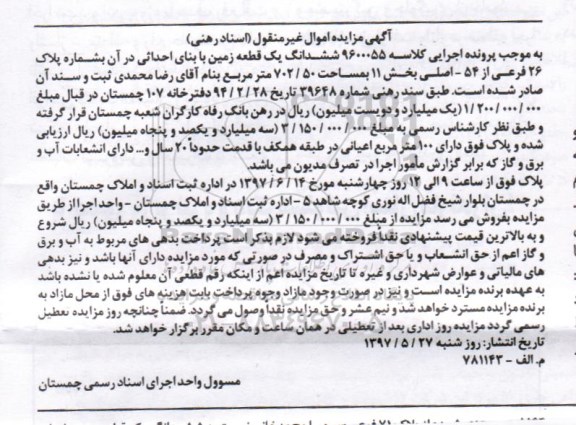 آگهی مزایده اموال غیر منقول (اسناد رهنی)
به موجب پرونده اجرایی کلاسه ۹۶۰۰۰۵۵ ششدانگ یک قطعه زمین با بنای احداثی در آن بشماره پلاک
۲۶ فرعی از ۵۴ - اصلی بخش ۱۱ بمساحت ۷۰۲/۵۰ متر مربع بنام آقای رضا محمدی ثبت و سند آن
صادر شده است. طبق سند رهنی شماره ۳۹۶۴۸ تاریخ ۹۴/۲/۲۸ دفترخانه ۱۰۷ چمستان در قبال مبلغ
۱/۲۰۰/۰۰۰/۰۰۰ (یک میلیارد و دویست میلیون) ریال در رهن بانک رفاه کارگران شعبه چمستان قرار گرفته
و طبق نظر کارشناس رسمی به مبلغ ۳/۱۵۰/۰۰۰/۰۰۰ (سه میلیارد و یکصد و پنجاه میلیون) ریال ارزیابی
شده و پلاک فوق دارای ۱۰۰ متر مربع اعیانی در طبقه همکف با قدمت حدوداً ۲۰ سال و... دارای انشعابات آب و
برق و گاز که برابر گزارش مامور اجرا در تصرف مدیون می باشد.
پلاک فوق از ساعت ۹ الی ۱۲ روز چهارشنبه مورخ ۱۳۹۷/۶/۱۴ در اداره ثبت اسناد و املاک چمستان واقع
در چمستان بلوار شیخ فضل اله نوری کوچه شاهد ۵ - اداره ثبت اسناد و املاک چمستان - واحد اجرا از طریق
مزایده بفروش می رسد مزایده از مبلغ ۳/۱۵۰/۰۰۰/۰۰۰ (سه میلیارد و یکصد و پنجاه میلیون) ریال شروع
و به بالاترین قیمت پیشنهادی نقداً فروخته می شود لازم بذکر است پرداخت بدهی های مربوط به آب و برق
و گاز اعم از حق انشعاب و یا حق اشتراک و مصرف در صورتی که مورد مزایده دارای آنها باشد و نیز بدهی
های مالیاتی و عوارض شهرداری و غیره تا تاریخ مزایده اعم از اینکه رقم قطعی آن معلوم شده یا نشده باشد
به عهده برنده مزایده است و نیز در صورت وجود مازاد وجوه پرداختی بابت هزینه های فوق از محل مازاد به
برنده مزایده مسترد خواهد شد و نیم عشر و حق مزایده نقداً وصول می گردد. ضمناً چنانچه روز مزایده تعطیل
رسمی گردد مزایده روز اداری بعد از تعطیلی در همان ساعت و مکان مقرر برگزار خواهد شد.
تاریخ انتشار: روز شنبه ۱۳۹۷/۵/۲۷
م. الف - ۷۸۱۱۴۳
مسوول واحد اجرای اسناد رسمی چمستان